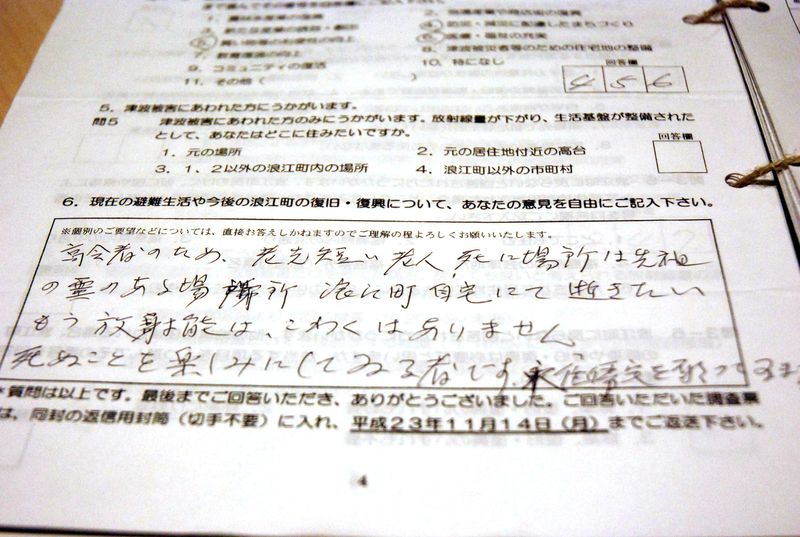 4. 防災・減災に配慮したまちづくり
6. 医療・福祉の充実
7. 教育環境の向上
8. 津波被災者等のための住宅地の整備
9. コミュニティの復活
10. 特になし
11. その他（ ）
回答欄
4 5 6
5. 津波被害にあわれた方にうかがいます。
問5 津波被害にあわれた方のみにうかがいます。放射線量が下がり、生活基盤が整備された
として、あなたはどこに住みたいですか。
回答欄
1. 元の場所
2. 元の居住地付近の高台
3. 1、2以外の浪江町内の場所
4. 浪江町以外の市町村
6. 現在の避難生活や今後の浪江町の復旧・復興について、あなたの意見を自由にご記入下さい。
※個別のご要望などについては、直接お答えしかねますのでご理解の程よろしくお願いいたします。
高令者のため、老先短い老人 死に場所は先祖
の霊のある場所 浪江町自宅にて逝きたい
もう放射能は、こわくはありません
死ぬことを楽しみにしてゐる者です
＊質問は以上です。最後までご回答いただき、ありがとうございました。ご回答いただいた調査票
は、同封の返信用封筒（切手不要）に入れ、平成23年11月14日（月）までご返送下さい。
4